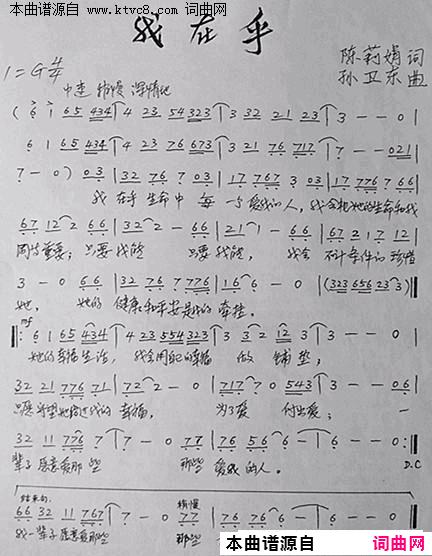 本曲谱源自 www.ktvc8.com 词曲网
我在乎
陈莉娟 词
1=G 4/4
孙卫东 曲
中速 稍慢 深情地
( 6 1 65 434 | 4 23 54 323 | 3 32 21 23 | 3 - - 0 |
6 1 65 434 | 4 23 76 673 | 3 21 76 717 | 7 - - 021 |
7 - 0 ) 03 | 32 76 7 03 | 17 767 3 03 | 17 776 7 66 |
我 在乎 生命中 每一个爱我的人, 我会把她的生命和我
67 12 2 66 | 32 2 - 66 | 21 1 - 66 | 67 21 7 12 |
同等重要; 只要我能 只要我能, 我会 不计条件的珍惜
3 - 0 66 | 32 76 7 776 | 16 6 - 0 | (323 656 23 3) |
她, 她的 健康和平安是我的牵挂.
mf
|: 6 1 65 434 | 4 23 554 323 | 3 3 2 12 3 | 3 - - 0 |
她的幸福生活, 我会用自己的幸福 做 铺垫;
32 21 776 71 | 72 2 - 0 | 717 7 0 543 | 3 - - 06 |
只愿希望她跨过我的 幸福, 为了爱 付出爱; 一
32 11 776 7 | 7 - 0 77 | 76 56 6 - | 6 - - 0 :|
辈子愿意爱那些 那些 爱我的人.
D.C
结束句:
稍慢
66 32 11 767 | 7 - 0 77 | 76 76 6 - | 6 - - 0 |
我一辈子愿意爱那些 那些
本曲谱源自
词曲网